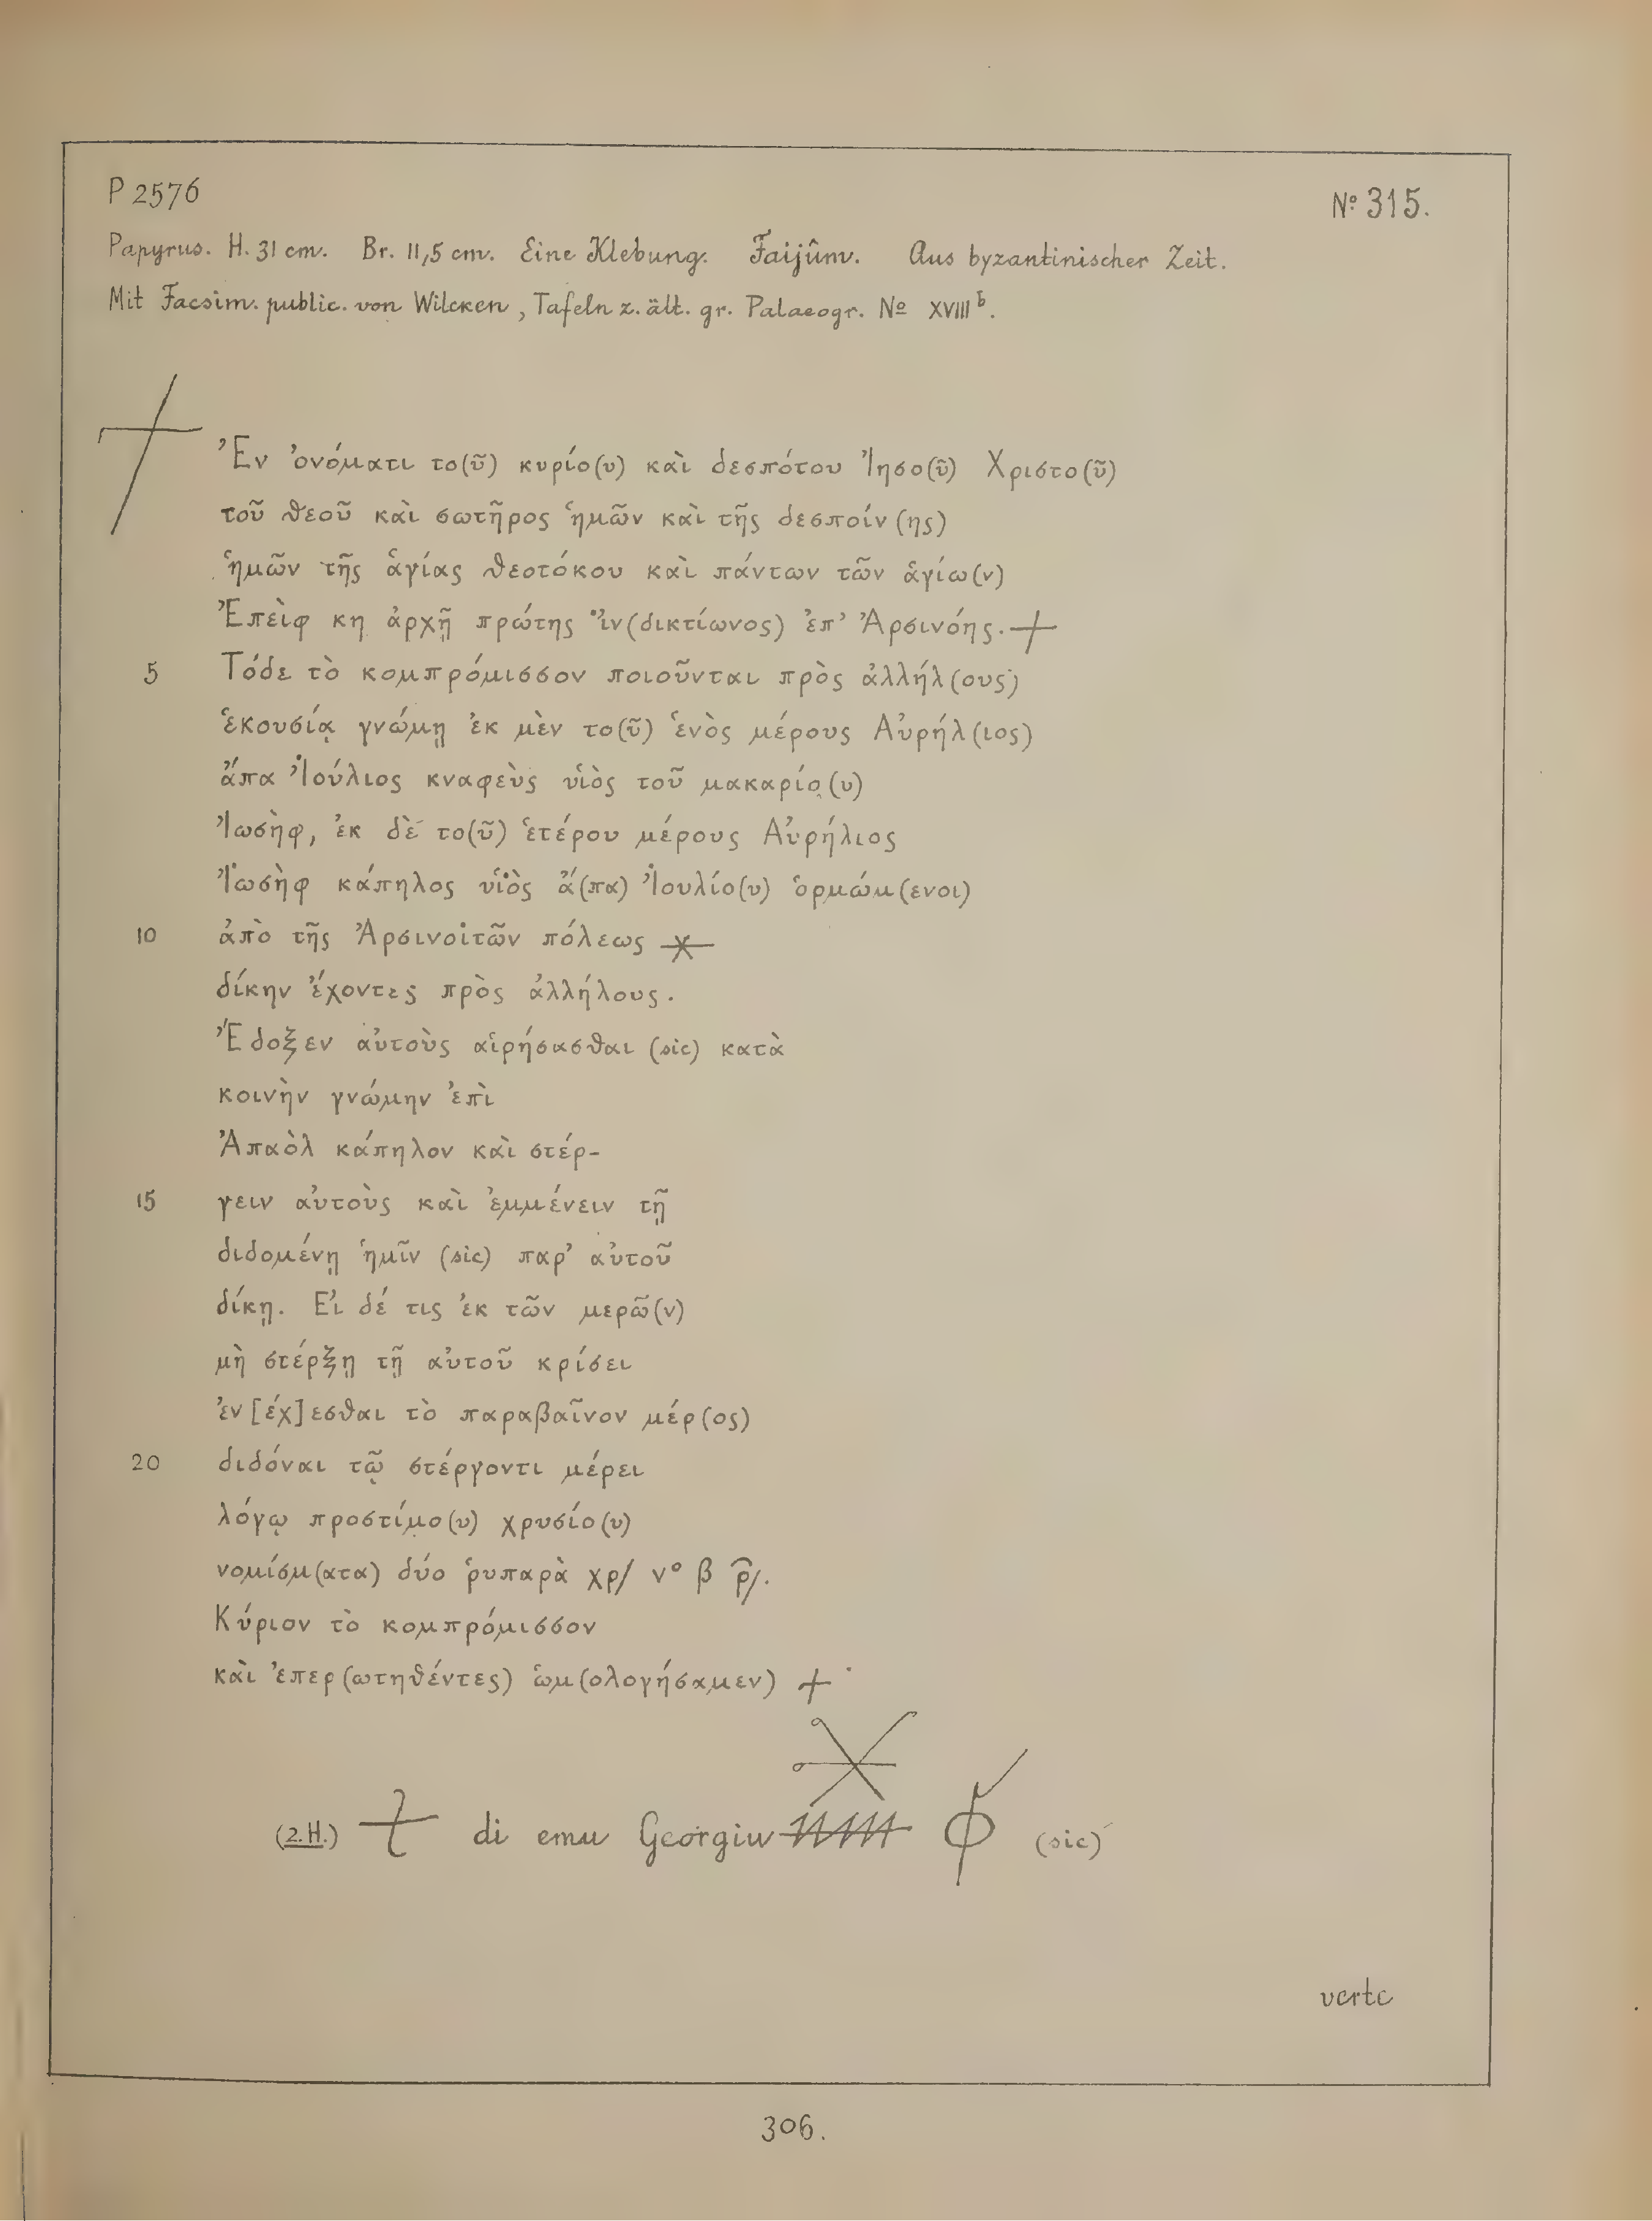 P 2576
Nº 315.
Papyrus. H. 31 cm. Br. 11,5 cm. Eine Klebung. Faijûm. Aus byzantinischer Zeit.
Mit Facsim. public. von Wilcken, Tafeln z. ält. gr. Palaeogr. Nº XVIIIᵇ.
Ἐν ὀνόματι το(ῦ) κυρίο(υ) καὶ δεσπότου Ἰησο(ῦ) Χριστο(ῦ)
τοῦ θεοῦ καὶ σωτῆρος ἡμῶν καὶ τῆς δεσποίν(ης)
ἡμῶν τῆς ἁγίας θεοτόκου καὶ πάντων τῶν ἁγίω(ν)
Ἐπεὶφ κη ἀρχῇ πρώτης ἰν(δικτίωνος) ἐπ’ Ἀρσινόης. +
5 Τόδε τὸ κομπρόμισσον ποιοῦνται πρὸς ἀλλήλ(ους)
ἑκουσίᾳ γνώμῃ ἐκ μὲν το(ῦ) ἑνὸς μέρους Αὐρήλ(ιος)
ἄπα Ἰούλιος κναφεὺς υἱὸς τοῦ μακαρίο̣(υ)
Ἰωσὴφ, ἐκ δὲ το(ῦ) ἑτέρου μέρους Αὐρήλιος
Ἰωσὴφ κάπηλος υἱὸς ἄ(πα) Ἰουλίο(υ) ὁρμώμ(ενοι)
10 ἀπὸ τῆς Ἀρσινοϊτῶν πόλεως
δίκην ἔχοντες πρὸς ἀλλήλους.
Ἔδοξεν αὐτοὺς αἱρήσασθαι (sic) κατὰ
κοινὴν γνώμην ἐπὶ
Ἀπαὸλ κάπηλον καὶ στέρ-
15 γειν αὐτοὺς καὶ ἐμμένειν τῇ
διδομένῃ ἡμῖν (sic) παρ’ αὐτοῦ
δίκῃ. Εἰ δέ τις ἐκ τῶν μερῶ(ν)
μὴ στέρξῃ τῇ αὐτοῦ κρίσει
ἐν[έχ]εσθαι τὸ παραβαῖνον μέρ(ος)
20 διδόναι τῷ στέργοντι μέρει
λόγῳ προστίμο(υ) χρυσίο(υ)
νομίσμ(ατα) δύο ῥυπαρὰ χρ/ νº β ρ/.
Κύριον τὸ κομπρόμισσον
καὶ ἐπερ(ωτηθέντες) ὡμ(ολογήσαμεν) +
(2.H.) di emu Georgiu (sic)
verte
306.